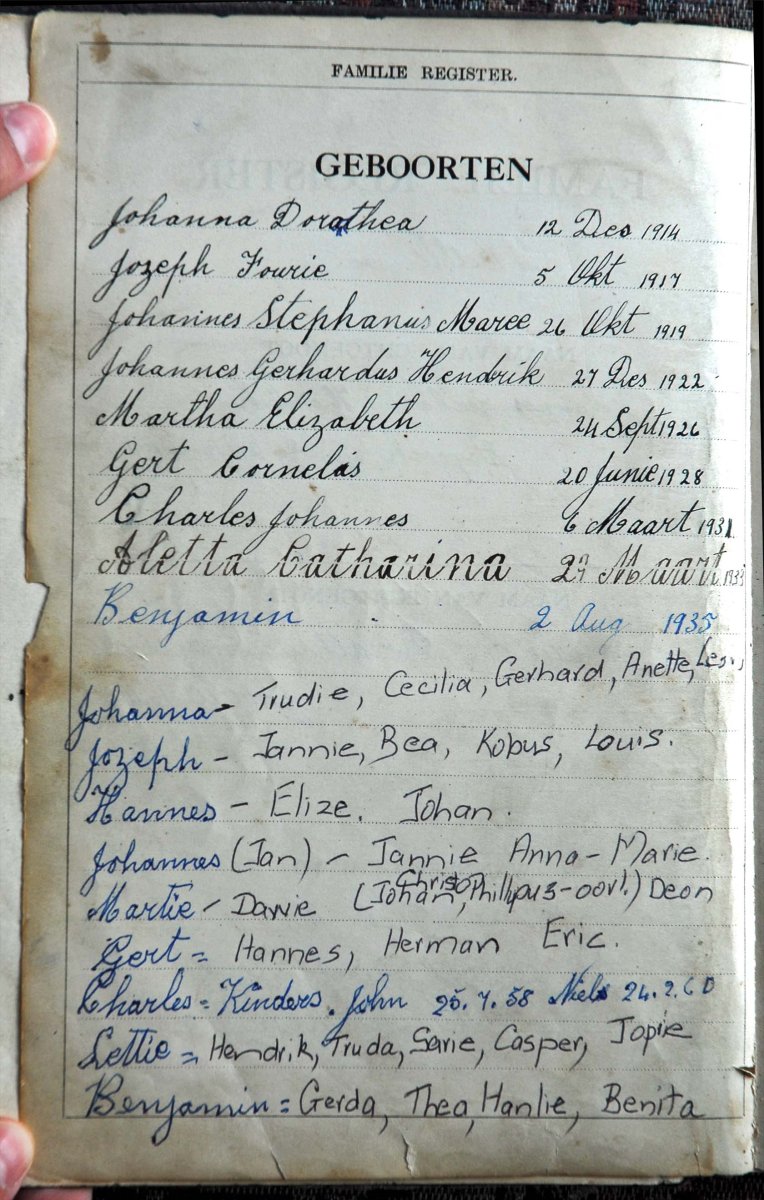 FAMILIE REGISTER.
GEBOORTEN
Johanna Dorathea 12 Des 1914
Jozeph Fourie 5 Okt 1917
Johannes Stephanus Maree 26 Okt 1919
Johannes Gerhardus Hendrik 27 Des 1922
Martha Elizabeth 24 Sept 1926
Gert Cornelis 20 Junie 1928
Charles Johannes 6 Maart 1931
Aletta Catharina Maart
Benjamin 2 Aug 1935
Johanna - Trudie, Cecilia, Gerhard, Anette,
Jozeph - Jannie, Bea, Kobus, Louis.
Hannes - Elize. Johan.
Johannes (Jan) - Jannie Anna-Marie.
Christo
Martie - Dawie (Johan, Phillipus-oorl.) Deon
Gert = Hannes, Herman Eric.
Charles = Kinders. John 25.7.58 Niels
Lettie = Hendrik, Truda, Sarie, Casper, Jopie
Benjamin = Gerda, Thea, Hanlie, Benita